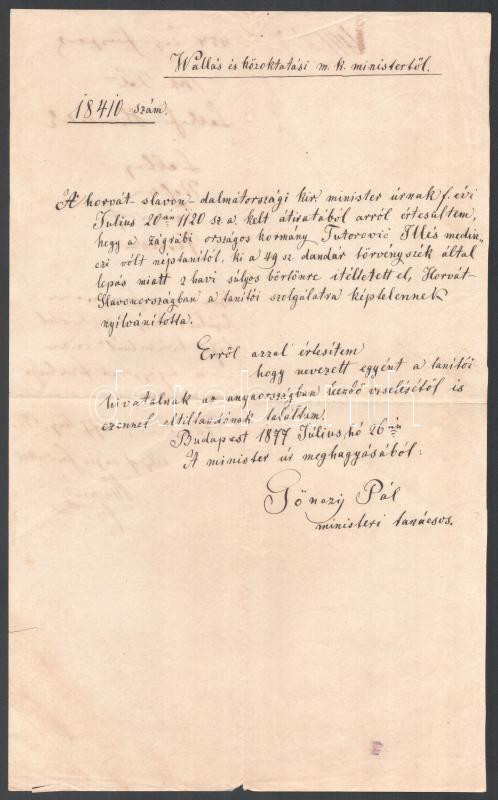 Vallás és közoktatási m. k. ministertől.
18410 szám.
A horvát-slavon-dalmátországi kir. minister úrnak f. évi
Julius 20án 1120 sz. a. kelt átiratából arról értesültem,
hogy a zágrábi országos kormány Tutorović Illés medin-
czi vólt néptanítót, ki a 49 sz. dandár törvényszék által
lopás miatt 2 havi súlyos börtönre itéltetett el, Horvát-
Slavonországban a tanítói szolgálatra képtelennek
nyilvánította.
Erről azzal értesítem
hogy nevezett egyént a tanítói
hivatalnak az anyaországban leendő viselésétől is
ezennel eltiltandónak találtam.
Budapest 1877 Július hó 26án
A minister úr meghagyásából:
Gönczy Pál
ministeri tanácsos.
darabanth